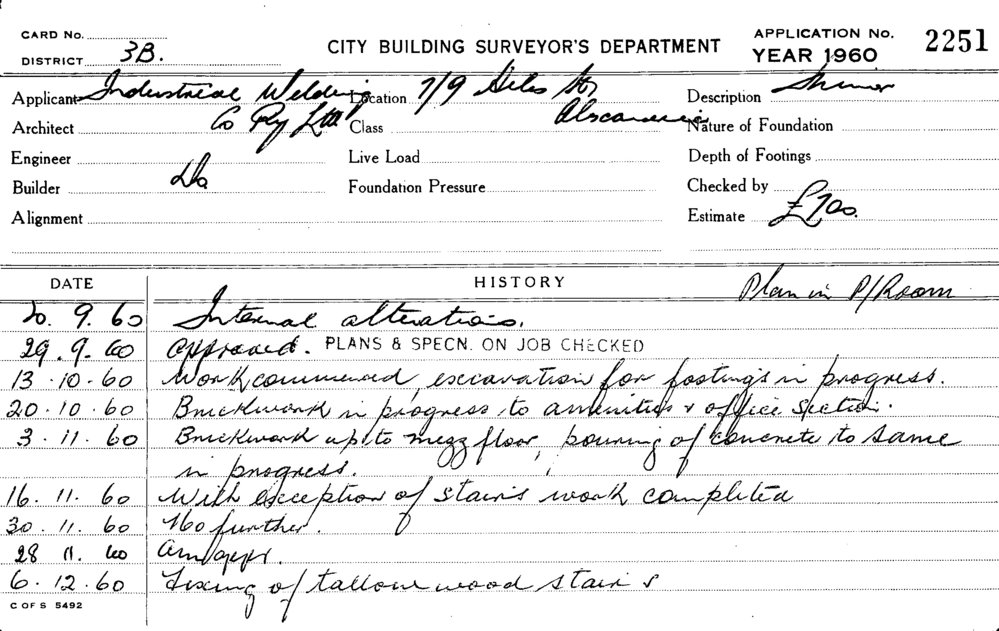 CARD No.
DISTRICT 3B.
CITY BUILDING SURVEYOR'S DEPARTMENT
APPLICATION No. 2251
YEAR 1960
Applicant Industrial Welding Location 7/9 Giles St, Description
Architect Co Pty Ltd Class Alexandria Nature of Foundation
Engineer Live Load Depth of Footings
Builder Do Foundation Pressure Checked by
Alignment Estimate £700.
DATE HISTORY Plan in P/Room
20. 9. 60 Internal alterations.
29. 9. 60 approved. PLANS & SPECN. ON JOB CHECKED
13. 10. 60 Work commenced, excavation for footings in progress.
20. 10. 60 Brickwork in progress to amenities & office section.
3. 11. 60 Brickwork up to mezz floor, pouring of concrete to same
in progress.
16. 11. 60 With exception of stairs work completed
30. 11. 60 No further.
28 11. 60 am appr.
6. 12. 60 Fixing of tallow wood stair &
C OF S 5492